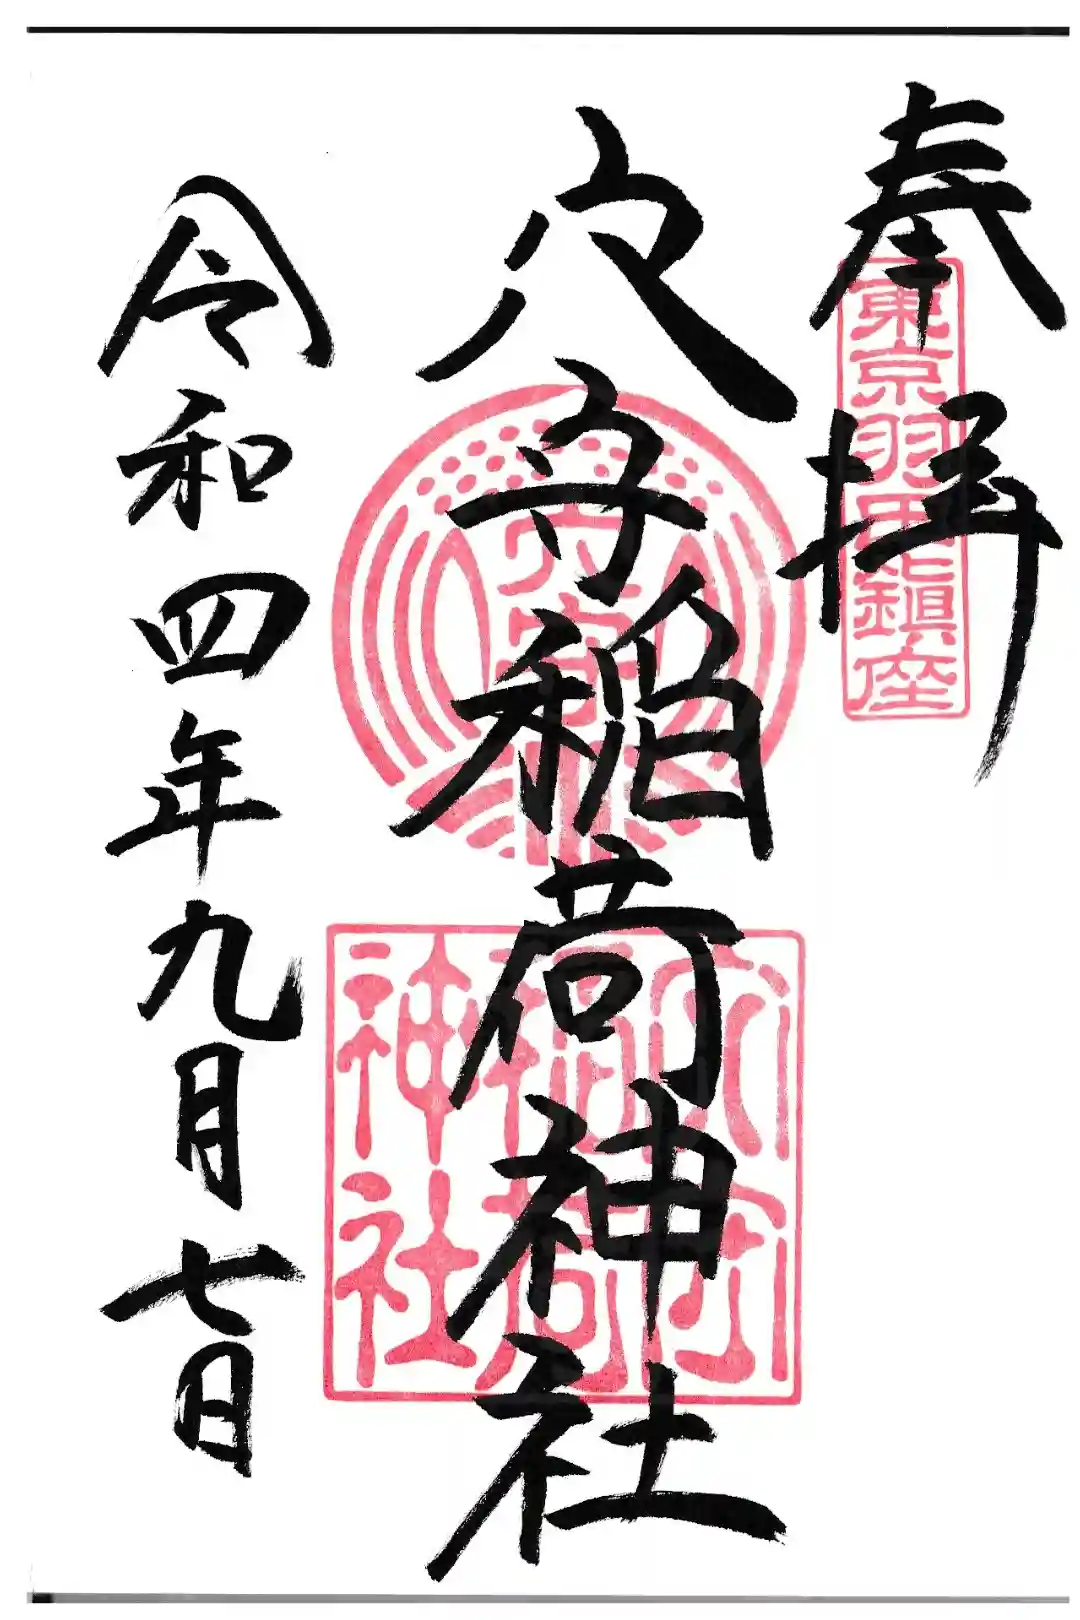 奉拝
東京羽田鎮座
穴守稲荷神社
穴守
穴守稲荷神社
令和四年九月七日